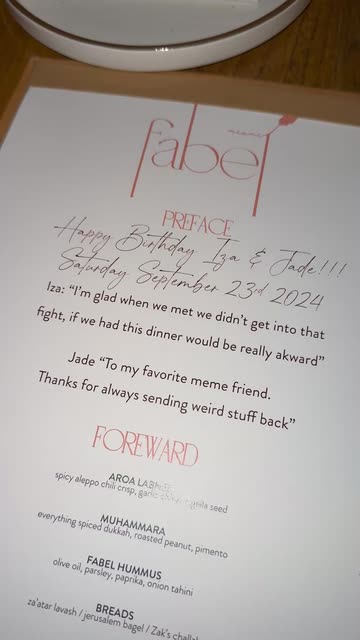 miami
fabel
PREFACE
Happy Birthday Iza & Jade!!!
Saturday September 23rd 2024
Iza: “I'm glad when we met we didn't get into that
fight, if we had this dinner would be really akward”
Jade “To my favorite meme friend.
Thanks for always sending weird stuff back”
FOREWARD
AROA LABNEH
spicy aleppo chili crisp, garlic seed
MUHAMMARA
everything spiced dukkah, roasted peanut, pimento
FABEL HUMMUS
olive oil, parsley, paprika, onion tahini
BREADS
za'atar lavash / jerusalem bagel / Zak's challah